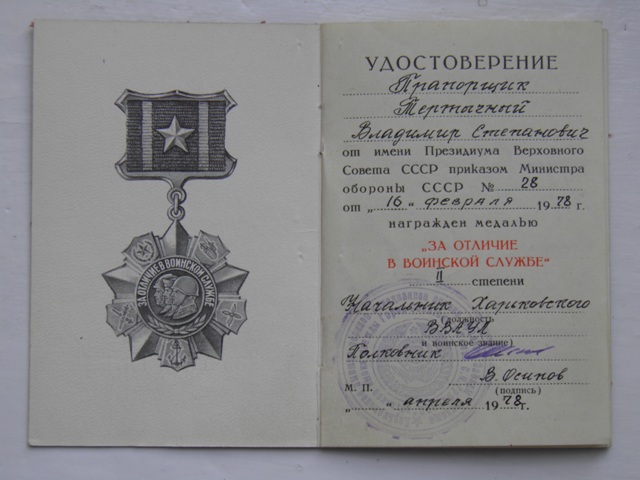 ЗА ОТЛИЧИЕ В ВОИНСКОЙ СЛУЖБЕ
УДОСТОВЕРЕНИЕ
Прапорщик
Тертычный
Владимир Степанович
от имени Президиума Верховного
Совета СССР приказом Министра
обороны СССР № 28
от „16“ февраля 1978 г.
награжден медалью
„ЗА ОТЛИЧИЕ
В ВОИНСКОЙ СЛУЖБЕ“
II степени
Начальник Харьковского
(должность
ВВАУЛ
и воинское звание)
Полковник
В. Осипов
М. П.
(подпись)
„ “ апреля 1978 г.